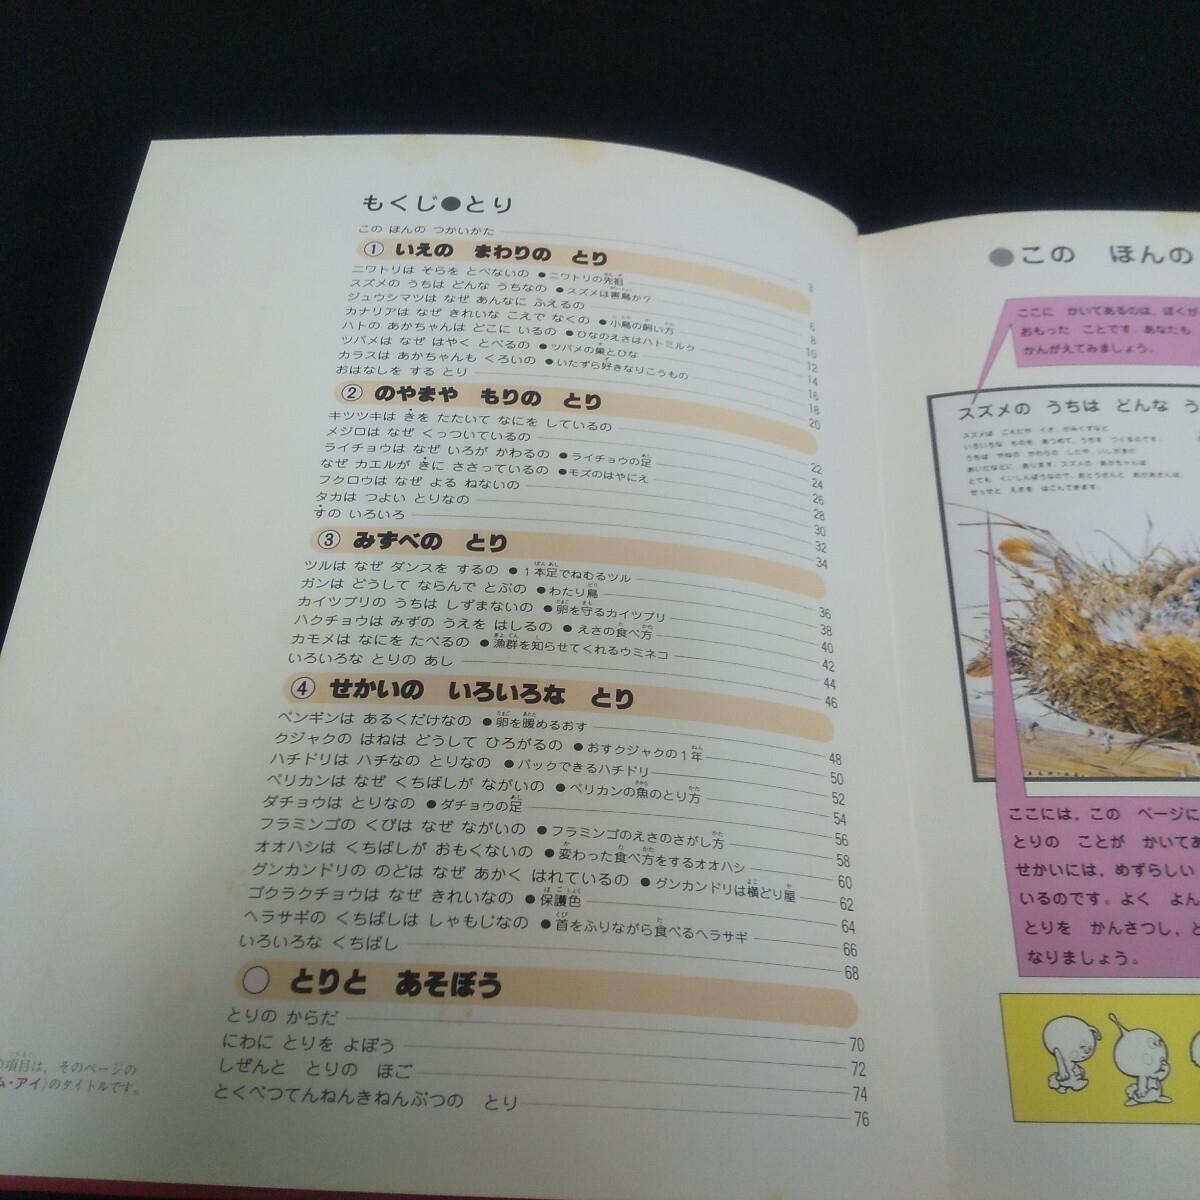 もくじ●とり
この ほんの つかいかた
① いえの まわりの とり
ニワトリは そらを とべないの ●ニワトリの先祖
スズメの うちは どんな うちなの ●スズメは害鳥か? 6
ジュウシマツは なぜ あんなに ふえるの 8
カナリアは なぜ きれいな こえで なくの ●小鳥の飼い方 10
ハトの あかちゃんは どこに いるの ●ひなのえさはハトミルク 12
ツバメは なぜ はやく とべるの ●ツバメの巣とひな 14
カラスは あかちゃんも くろいの ●いたずら好きなりこうもの 16
おはなしを する とり 18
② のやまや もりの とり 20
キツツキは きを たたいて なにを しているの 22
メジロは なぜ くっついているの 24
ライチョウは なぜ いろが かわるの ●ライチョウの足 26
なぜ カエルが きに ささっているの ●モズのはやにえ 28
フクロウは なぜ よる ねないの 30
タカは つよい とりなの 32
すの いろいろ 34
③ みずべの とり
ツルは なぜ ダンスを するの ●1本足でねむるツル 36
ガンは どうして ならんで とぶの ●わたり鳥 38
カイツブリの うちは しずまないの ●卵を守るカイツブリ 40
ハクチョウは みずの うえを はしるの ●えさの食べ方 42
カモメは なにを たべるの ●漁群を知らせてくれるウミネコ 44
いろいろな とりの あし 46
④ せかいの いろいろな とり
ペンギンは あるくだけなの ●卵を暖めるおす 48
クジャクの はねは どうして ひろがるの ●おすクジャクの1年 50
ハチドリは ハチなの とりなの ●バックできるハチドリ 52
ペリカンは なぜ くちばしが ながいの ●ペリカンの魚のとり方 54
ダチョウは とりなの ●ダチョウの足 56
フラミンゴの くびは なぜ ながいの ●フラミンゴのえさのさがし方 58
オオハシは くちばしが おもくないの ●変わった食べ方をするオオハシ 60
グンカンドリの のどは なぜ あかく はれているの ●グンカンドリは横どり屋 62
ゴクラクチョウは なぜ きれいなの ●保護色 64
ヘラサギの くちばしは しゃもじなの ●首をふりながら食べるヘラサギ 66
いろいろな くちばし 68
とりと あそぼう
とりの からだ 70
にわに とりを よぼう 72
しぜんと とりの ほご 74
とくべつてんねんきねんぶつの とり 76
の項目は、そのページの
ム・アイ〉のタイトルです。
●この ほんの
ここに かいてあるのは、ぼくが
おもった ことです。あなたも
かんがえてみましょう．
スズメの うちは どんな う
スズメは こえだや くさ、かみくずなど
いろいろな ものを あつめて、うちを つくるのです．
うちは やねの かわらの したや、いしがきの
あいだなどに あります．スズメの あかちゃんは
とても くいしんぼうなので、おとうさんと おかあさんは、
せっせと えさを はこんできます．
ここには，この ページに
とりの ことが かいてあ
せかいには，めずらしい
いるのです．よく よん
とりを かんさつし，と
なりましょう。